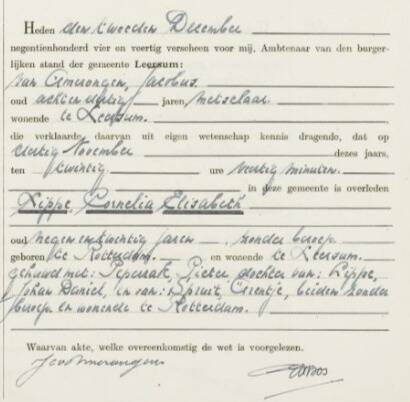 Heden den tweeden December
negentienhonderd vier en veertig verscheen voor mij, Ambtenaar van den burger-
lijken stand der gemeente Leersum:
van Amerongen, Jacobus
oud achtendertig jaren, metselaar
wonende te Leersum.
die verklaarde daarvan uit eigen wetenschap kennis dragende, dat op
dertig November dezes jaars,
ten twintig ure veertig minuten.
in deze gemeente is overleden
Lippe, Cornelia Elisabeth
oud negen en twintig jaren, zonder beroep
geboren te Rotterdam. en wonende te Leersum.
gehuwd met: Peperzak, Pieter dochter van: Lippe,
Johan Daniel, en van: Spruit, Arentje, beiden zonder
beroep en wonende te Rotterdam.
Waarvan akte, welke overeenkomstig de wet is voorgelezen.
J van Amerongen